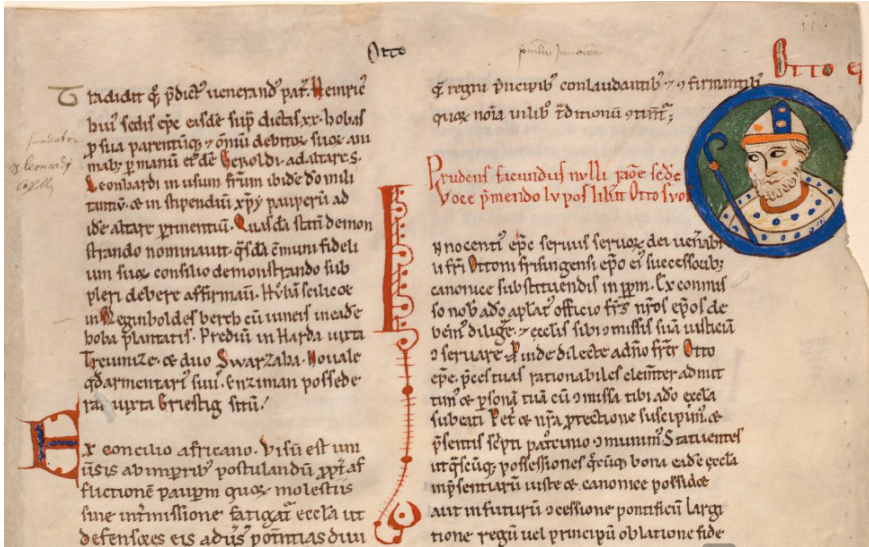 Otto
Otto ep
Tradidit q; p̄dict' venerand' pat'. Heinric'
hui' sedis ep̄c easdē sup̄ dictas .xx. hobas
p̱ sua parentūq; & om̄iū debitoꝝ suoꝝ ani
mab; p̱ manū Geroldi. ad altare s.
Leonhardi in usum fr̄um ibidē dō mili
tantiū. & in stipendiū xp̄i pauperū ad
idē altare ꝑtinentiū. Quasdā demon
strando nominavit q̄sdā cōmuni fideli
um suoꝝ consilio demonstrando sub
pleri debere affirmaū.
in Meginboldes berch cū vineis in eadē
hoba plantatis. Prediū in Harda iuxta
Treuinize. & duo Swarzaha. Nouale
qd̄ armentari' sui'. Enziman possede
rat iuxta Griestig sitū.
Ex concilio africano. Visū est uni
ūsis ab imp̱atorib' postulandū ꝓpt̄ af
flictionē paup̱um quoꝝ molestiis
sine int̄missione fatigat̄ eccl̄a ut
defensores eis adūs' potentias diui
q̄ regni p̄ncipib' conlaudantib' & ꝯfirmantib'
quoꝝ noīa
Prudens facundus nulli rōne sed's
Voce p̄mendo lupos libuit Otto suos
Innocenti' ep̄c seruus seruoꝝ dei uen̄abi
li fr̄i Ottoni frisingensi ep̄o ei' successorib;
canonice substituendis in ꝑpm. Ex cōmis
so nob' a dō ap̄lat' officio fr̄s nr̄os ep̄os de
bem' diligē. & eccl̄iis sibi ꝯmissis suā iusticiā
ꝯseruare. Proinde dilecte a dn̄o frater Otto
ep̄c. p̄ces tuas rationabiles clemēter admit
tim'. & ꝑsonā tuā cū ꝯmissa tibi a dō eccl̄a
beati Pet' & nr̄a ꝓtectione suscipim'. &
p̄sentis sc̄pti pat̄cinio ꝯmunim'. Statuentes
ut q̄scūq; possessiones q̄cūq; bona eadē eccl̄a
in p̄sentiarū iuste & canonice possidet
aut in futurū ꝯcessione pontificū largi
tione regū uel principū oblatione fide